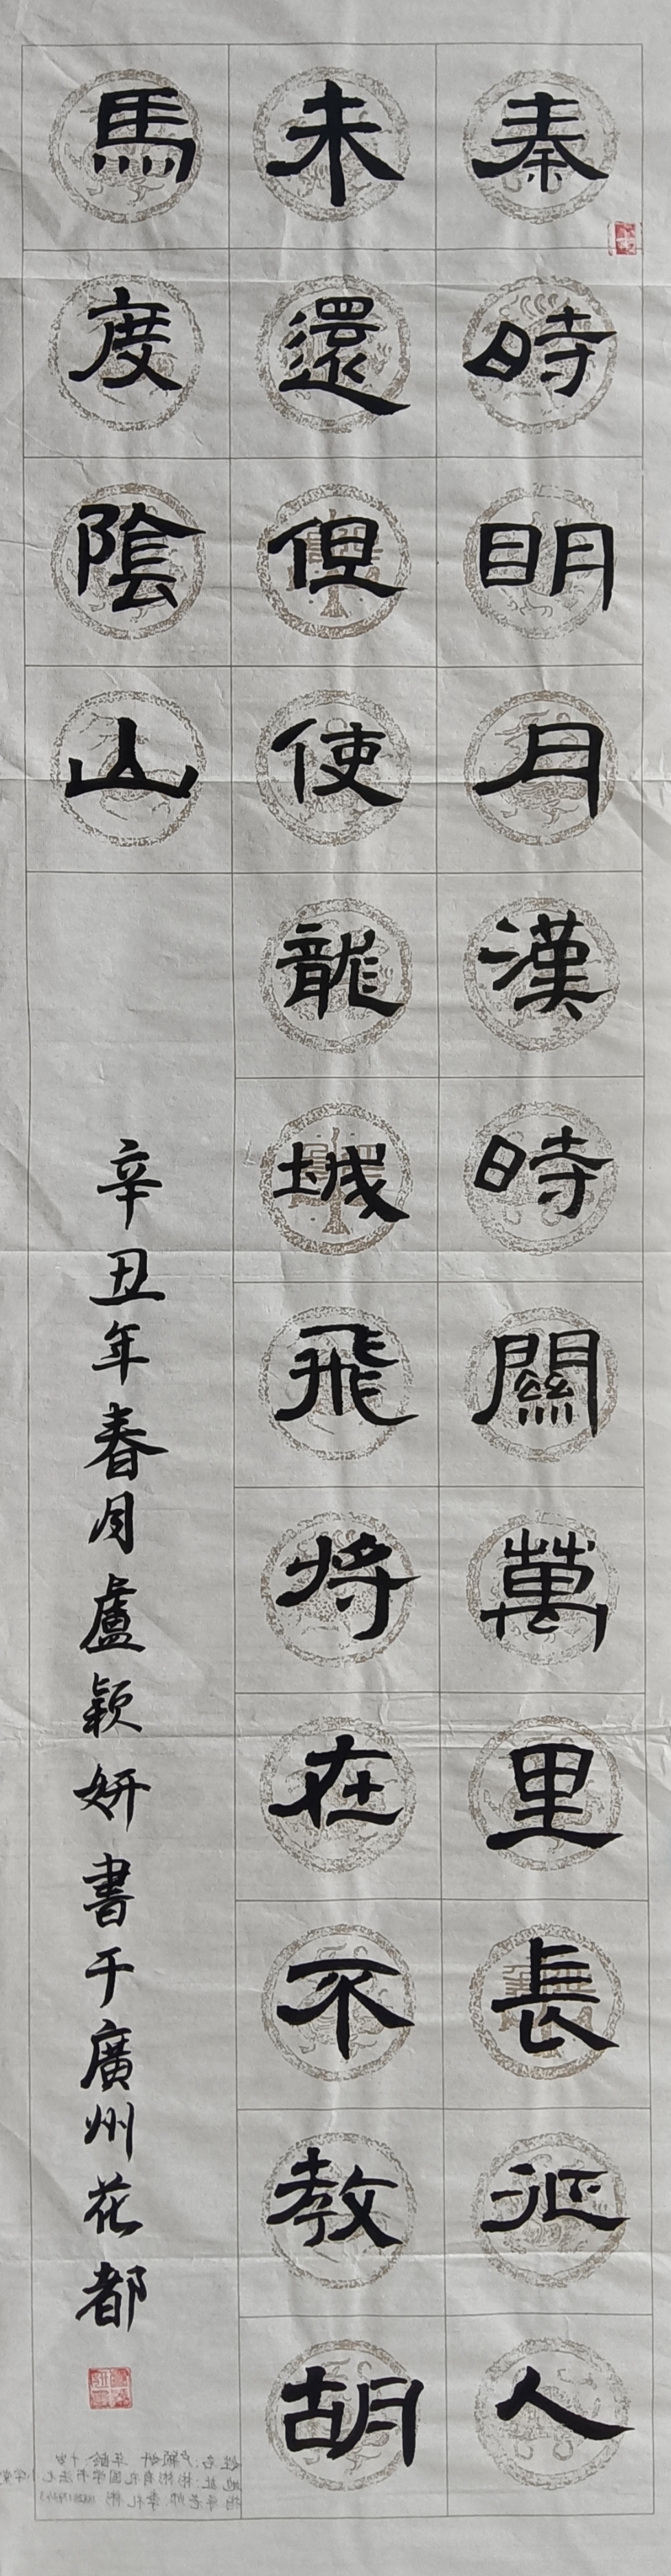 秦時明月漢時關萬里長征人
未還但使龍城飛将在不教胡
馬度陰山
辛丑年春月盧穎妍書于廣州花都